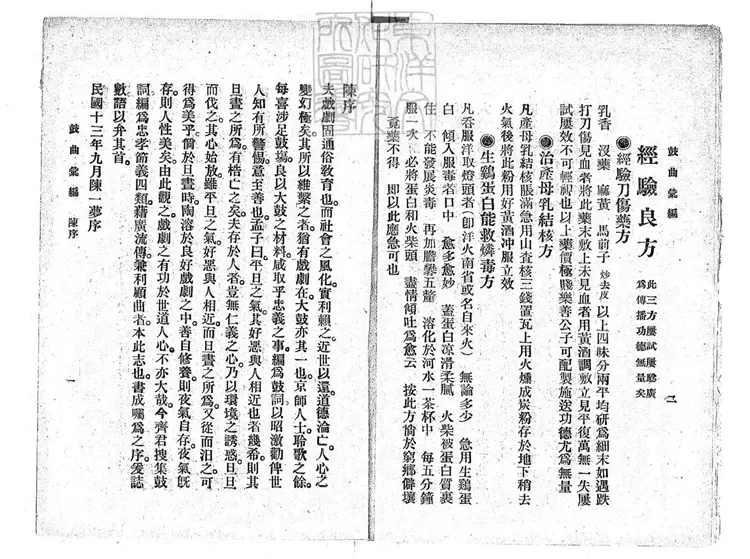 鼓曲彙編
二
經驗良方
此三方屢試屢愈廣
爲傳播功德無量矣
經驗刀傷藥方
乳香 沒藥 麻黃 馬前子 炒去皮 以上四味分兩平均研爲細末如遇跌
打刀傷見血者將此藥末敷上未見血者用黃酒調敷立見平復萬無一失屢
試屢效不可輕視也以上藥價極賤樂善公子可配製施送功德尤爲無量
治產母乳結核方
凡產母乳結核脹滿急用山查核三錢置瓦上用火煏成炭粉存於地下稍去
火氣後將此粉用好黃酒冲服立效
生鷄蛋白能救燐毒方
凡吞服洋取燈頭者(卽洋火南省或名自來火) 無論多少 急用生鷄蛋
白 傾入服毒者口中 愈多愈妙 蓋蛋白凉滑柔膩 火柴被蛋白質裹
住 不能發展炎毒 再加膽礬五釐 溶化於河水一茶杯中 每五分鐘
服一次 必將蛋白和火柴頭 盡情傾吐爲愈云 按此方倘於窮鄉僻壤
覓藥不得 卽以此應急可也
陳序
夫戲劇固通俗敎育也而社會之風化實利賴之近世以還道德淪亡人心之
變幻極矣其所以維繫之者猶有戲劇在大鼓亦其一也京師人士聆歌之餘
每喜涉足鼓塲良以大鼓之材料咸取乎忠義之事編爲鼓詞以昭激勸俾世
人知有所警惕意至善也孟子曰平旦之氣其好惡與人相近也者幾希則其
旦晝之所爲有梏亡之矣夫存於人者豈無仁義之心乃以環境之誘惑旦旦
而伐之其心始放雖平旦之氣好惡與人相近而旦晝之所爲又從而汨之可
得爲美乎倘於旦晝時陶溶於良好戲劇之中善自修養則夜氣自存夜氣旣
存則人性美矣由此觀之戲劇之有功於世道人心不亦大哉今齊君搜集鼓
詞編爲忠孝節義四類藉廣流傳兼利顧曲者本此志也書成囑爲之序爰誌
數語以弁其首
民國十三年九月陳一夢序
鼓曲彙編 陳序
一